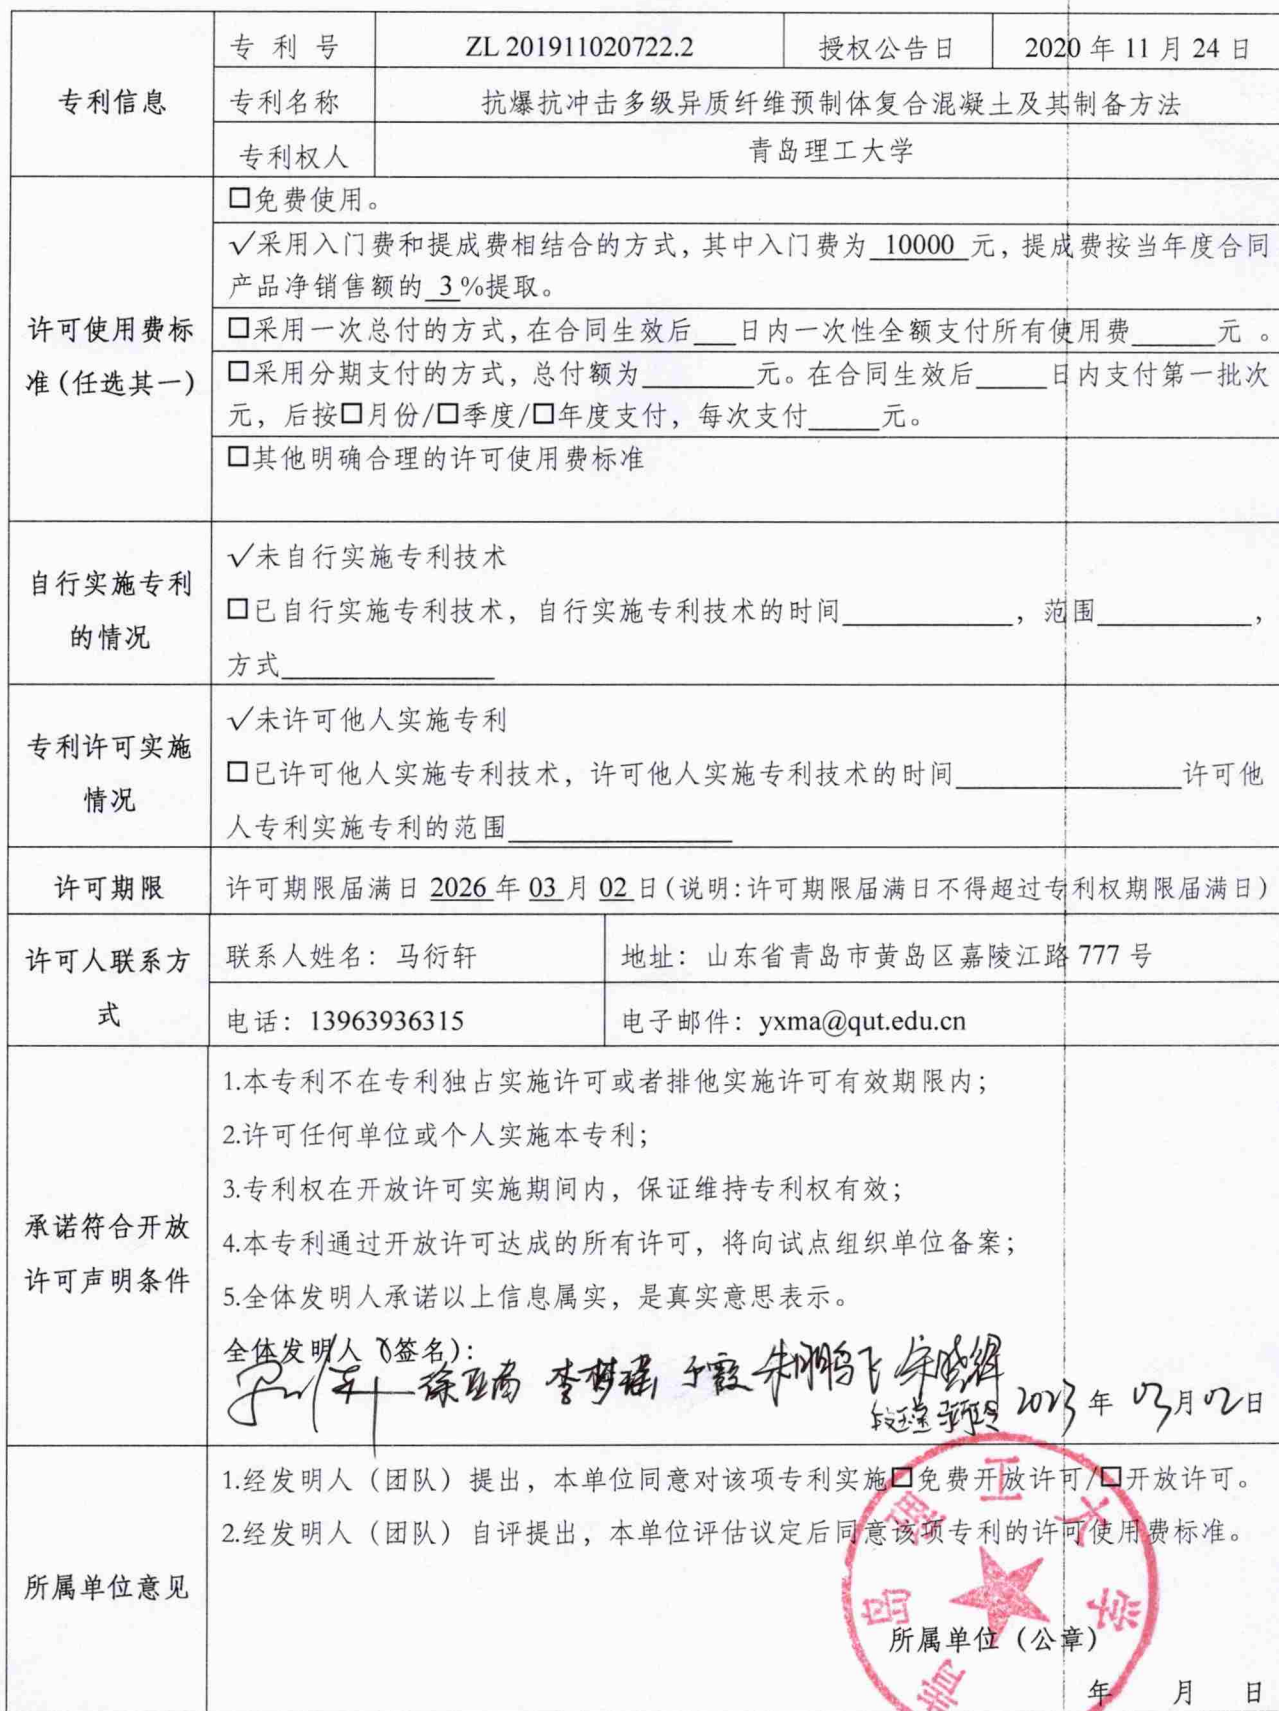 专利信息
专 利 号 ZL 201911020722.2 授权公告日 2020 年 11 月 24 日
专利名称 抗爆抗冲击多级异质纤维预制体复合混凝土及其制备方法
专利权人 青岛理工大学
许可使用费标
准(任选其一)
□免费使用。
√采用入门费和提成费相结合的方式,其中入门费为 10000 元,提成费按当年度合同
产品净销售额的 3 %提取。
□采用一次总付的方式,在合同生效后___日内一次性全额支付所有使用费______元 。
□采用分期支付的方式,总付额为________元。在合同生效后_____日内支付第一批次
元,后按□月份/□季度/□年度支付,每次支付_____元。
□其他明确合理的许可使用费标准
自行实施专利
的情况
√未自行实施专利技术
□已自行实施专利技术,自行实施专利技术的时间____________,范围___________,
方式_______________
专利许可实施
情况
√未许可他人实施专利
□已许可他人实施专利技术,许可他人实施专利技术的时间________________许可他
人专利实施专利的范围________________
许可期限
许可期限届满日 2026 年 03 月 02 日(说明:许可期限届满日不得超过专利权期限届满日)
许可人联系方
式
联系人姓名:马衍轩 地址:山东省青岛市黄岛区嘉陵江路 777 号
电话:13963936315 电子邮件:yxma@qut.edu.cn
承诺符合开放
许可声明条件
1.本专利不在专利独占实施许可或者排他实施许可有效期限内;
2.许可任何单位或个人实施本专利;
3.专利权在开放许可实施期间内,保证维持专利权有效;
4.本专利通过开放许可达成的所有许可,将向试点组织单位备案;
5.全体发明人承诺以上信息属实,是真实意思表示。
全体发明人(签名):
徐亚茜 李梦瑶 于霞 朱鹏飞 宋晓辉
2023 年 03 月 02 日
所属单位意见
1.经发明人(团队)提出,本单位同意对该项专利实施□免费开放许可/□开放许可。
2.经发明人(团队)自评提出,本单位评估议定后同意该项专利的许可使用费标准。
青岛理工大学
所属单位(公章)
年 月 日